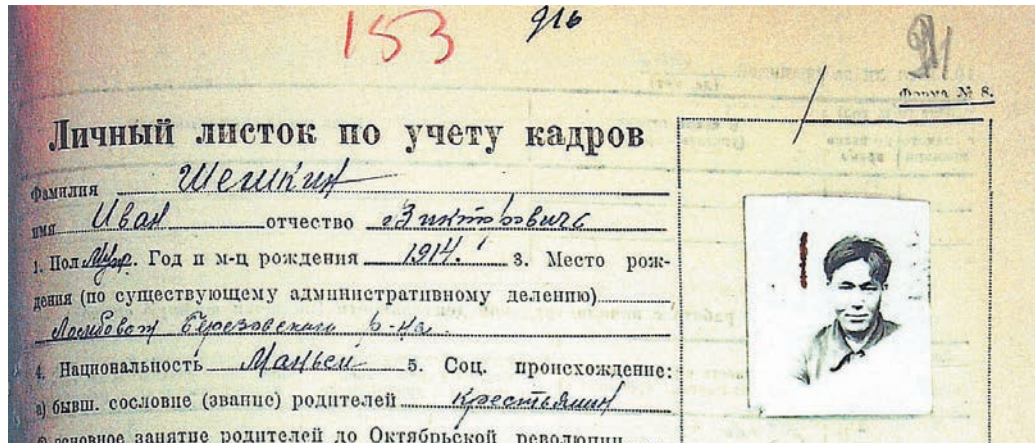 153 916 91
Форма № 8.
Личный листок по учету кадров
Фамилия Шешкин
имя Иван отчество Викторович
1. Пол Муж. Год и м-ц рождения 1914. 3. Место рож-
дения (по существующему административному делению)
Ломбовож Березовского р-на
4. Национальность Маньси 5. Соц. происхождение:
а) бывш. сословие (звание) родителей крестьянин
б) основное занятие родителей до Октябрьской революции